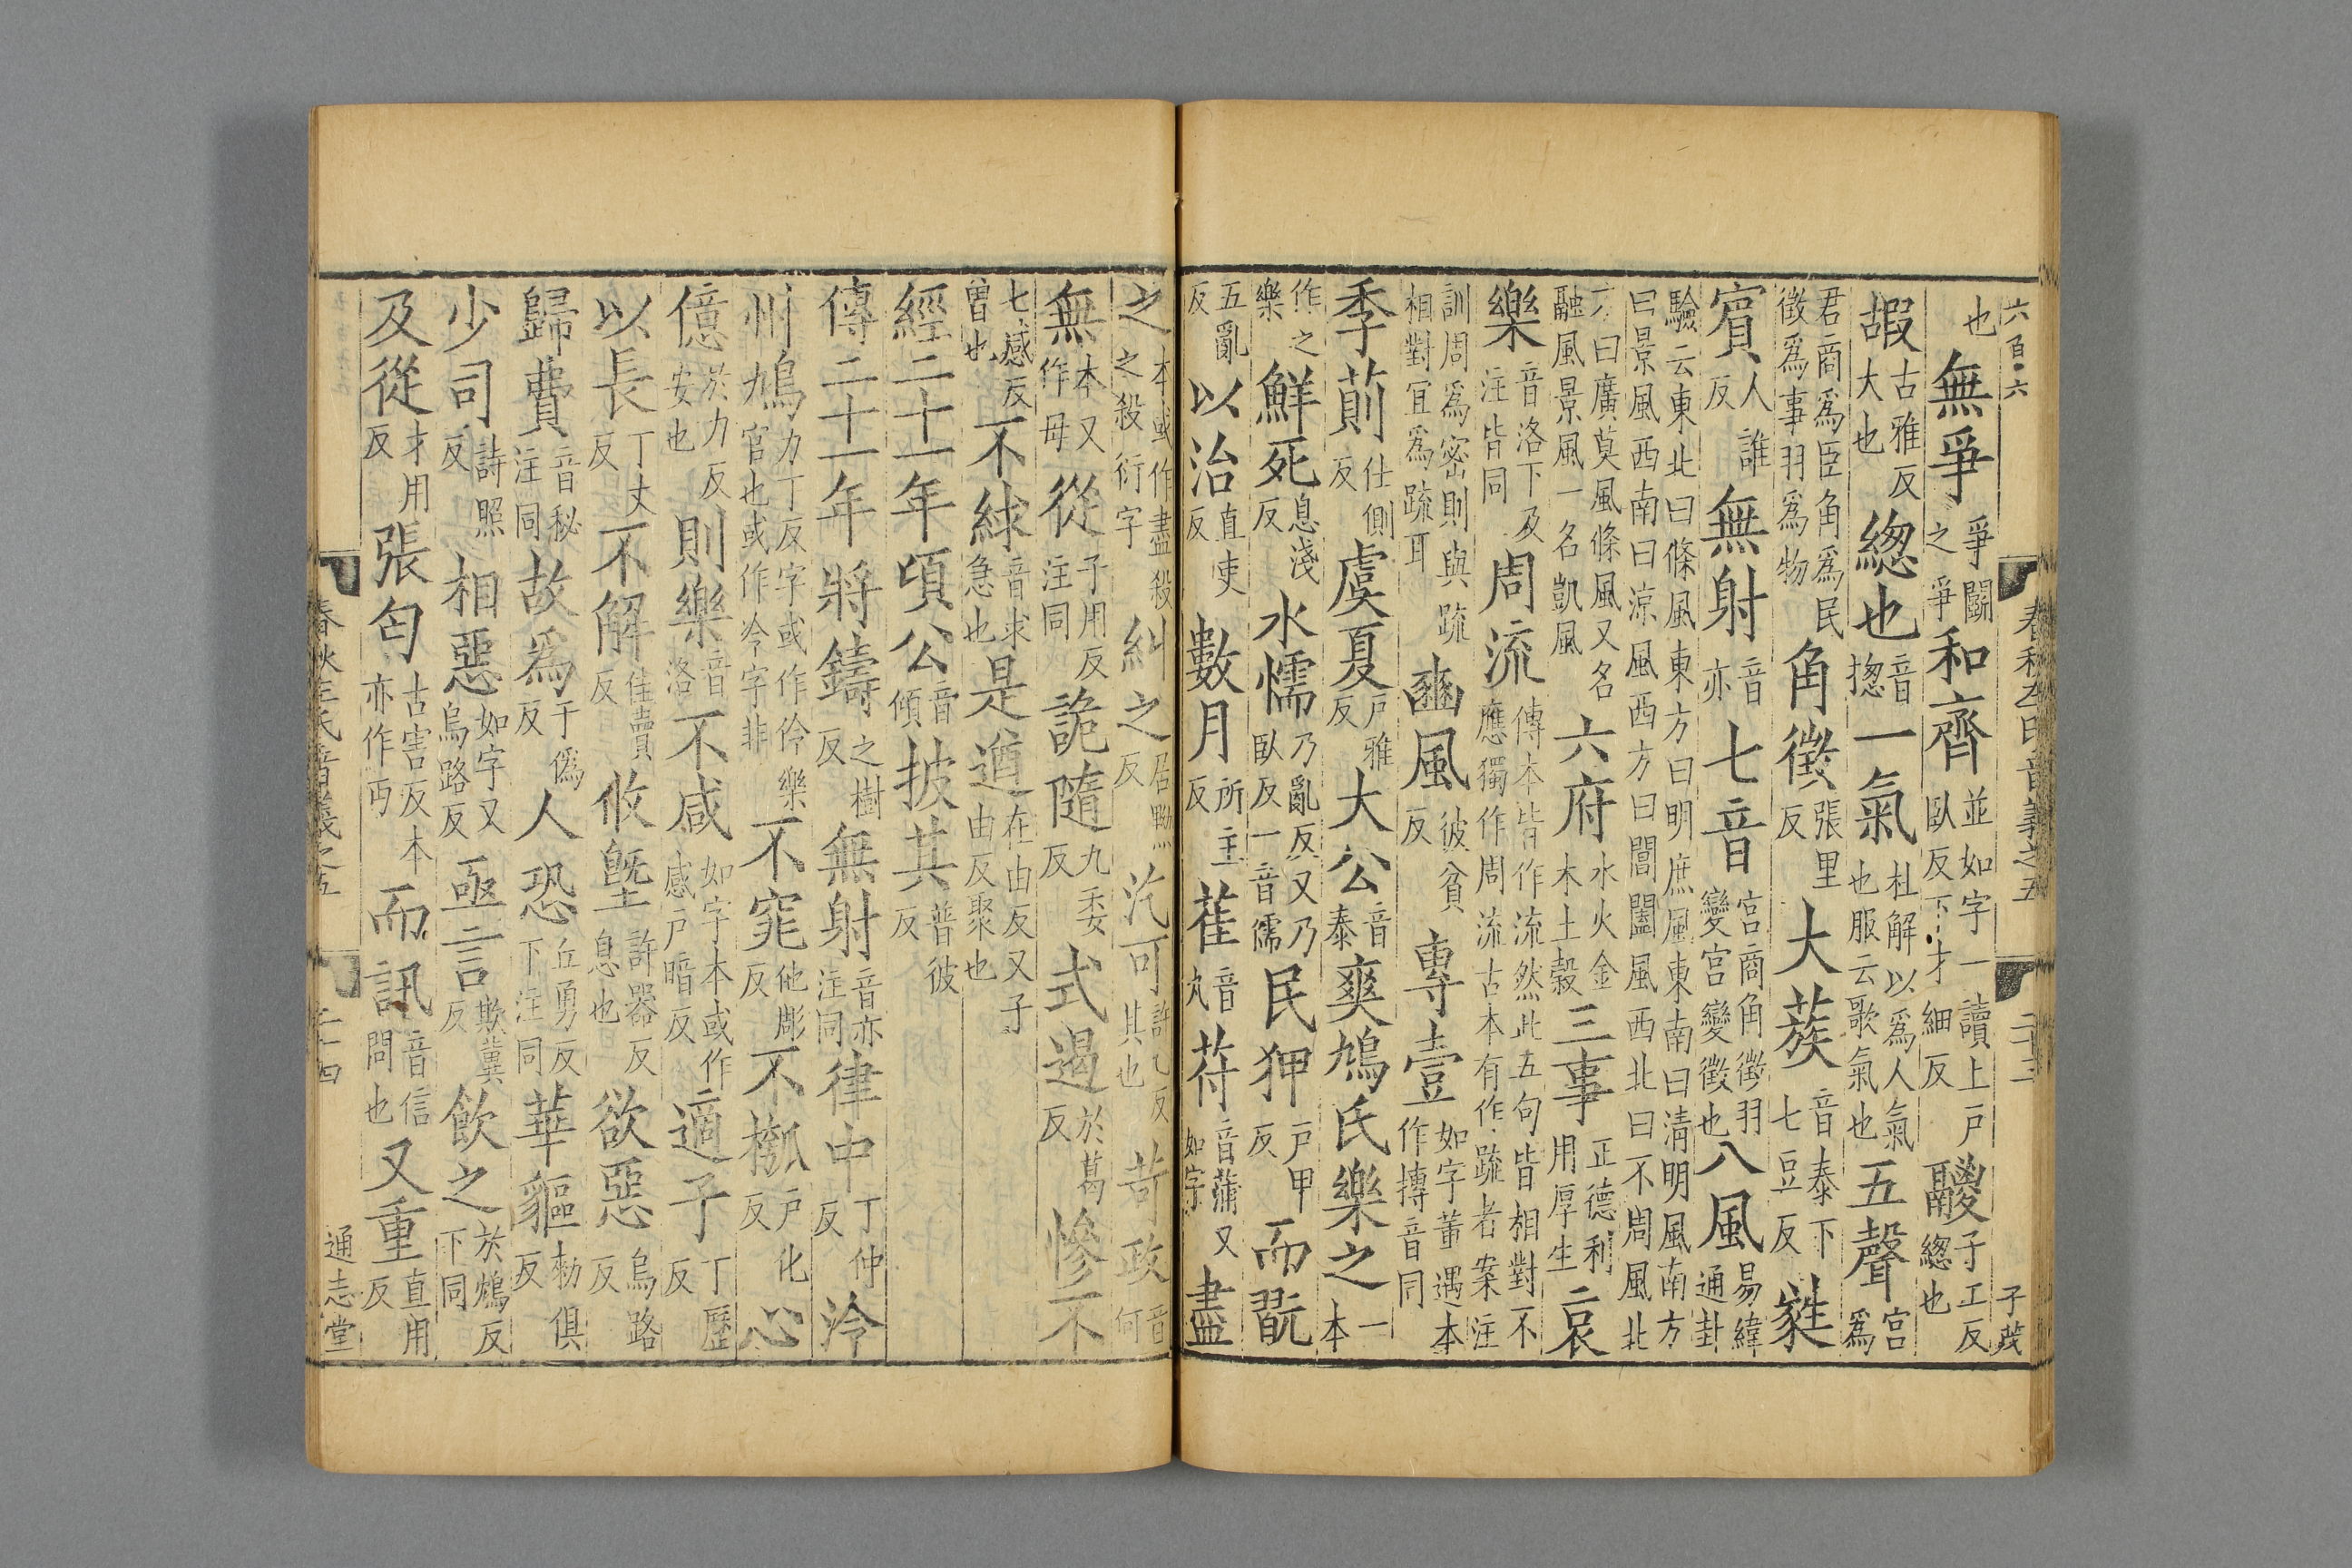 六百六 春秋左氏音義之五 二十三 子茂
也無爭爭鬬之爭和齊並如字一讀上戶臥反下才細反鬷子工反緫也
嘏古雅反大也緫也音揔一氣杜解以爲人氣也服云歌氣也五聲宮爲
君商爲臣角爲民徵爲事羽爲物角徵張里反大蔟音泰下七豆反蕤
賔人誰反無射音亦七音宮商角徵羽變宮變徵也八風易緯通卦
驗云東北曰條風東方曰明庶風東南曰淸明風南方曰景風西南曰涼風西方曰閶闔風西北曰不周風北
方曰廣莫風條風又名融風景風一名凱風六府水火金木土穀三事正德利用厚生哀
樂音洛下及注皆同周流傳本皆作流然此五句皆相對不應獨作周流古本有作疏者案注
訓周爲密則與疏相對宜爲疏耳豳風彼貧反專壹如字董遇本作摶音同
季萴仕側反虞夏戶雅反大公音泰爽鳩氏樂之一本
作之樂鮮死息淺反水懦乃亂反又乃臥反一音儒民狎戶甲反而翫
五亂反以治直吏反數月所主反萑音丸苻音蒲又如字盡
之本或作盡殺之殺衍字糾之居黝反汔可許乙反其也苛政音何
無本又作毋從子用反注同詭隨九委反式遏於葛反慘不
七感反曽也不絿音求急也是遒在由反又子由反聚也
經二十一年頃公音傾披其普彼反
傳二十一年將鑄之樹反無射音亦注同律中丁仲反泠
州鳩力丁反字或作伶樂官也或作冷字非不窕他彫反不槬戶化反心
億於力反安也則樂音洛不咸如字本或作感戶暗反適子丁歷反
以長丁丈反不解佳賣反攸墍許器反息也欲惡烏路反
歸費音秘注同故爲于僞反人恐丘勇反下注同華貙勑俱反
少司詩照反相惡如字又烏路反亟言欺冀反飲之於鴆反下同
及從才用反張匄古害反本亦作丐而訊音信問也又重直用反
春秋左氏音義之五 二十四 通志堂